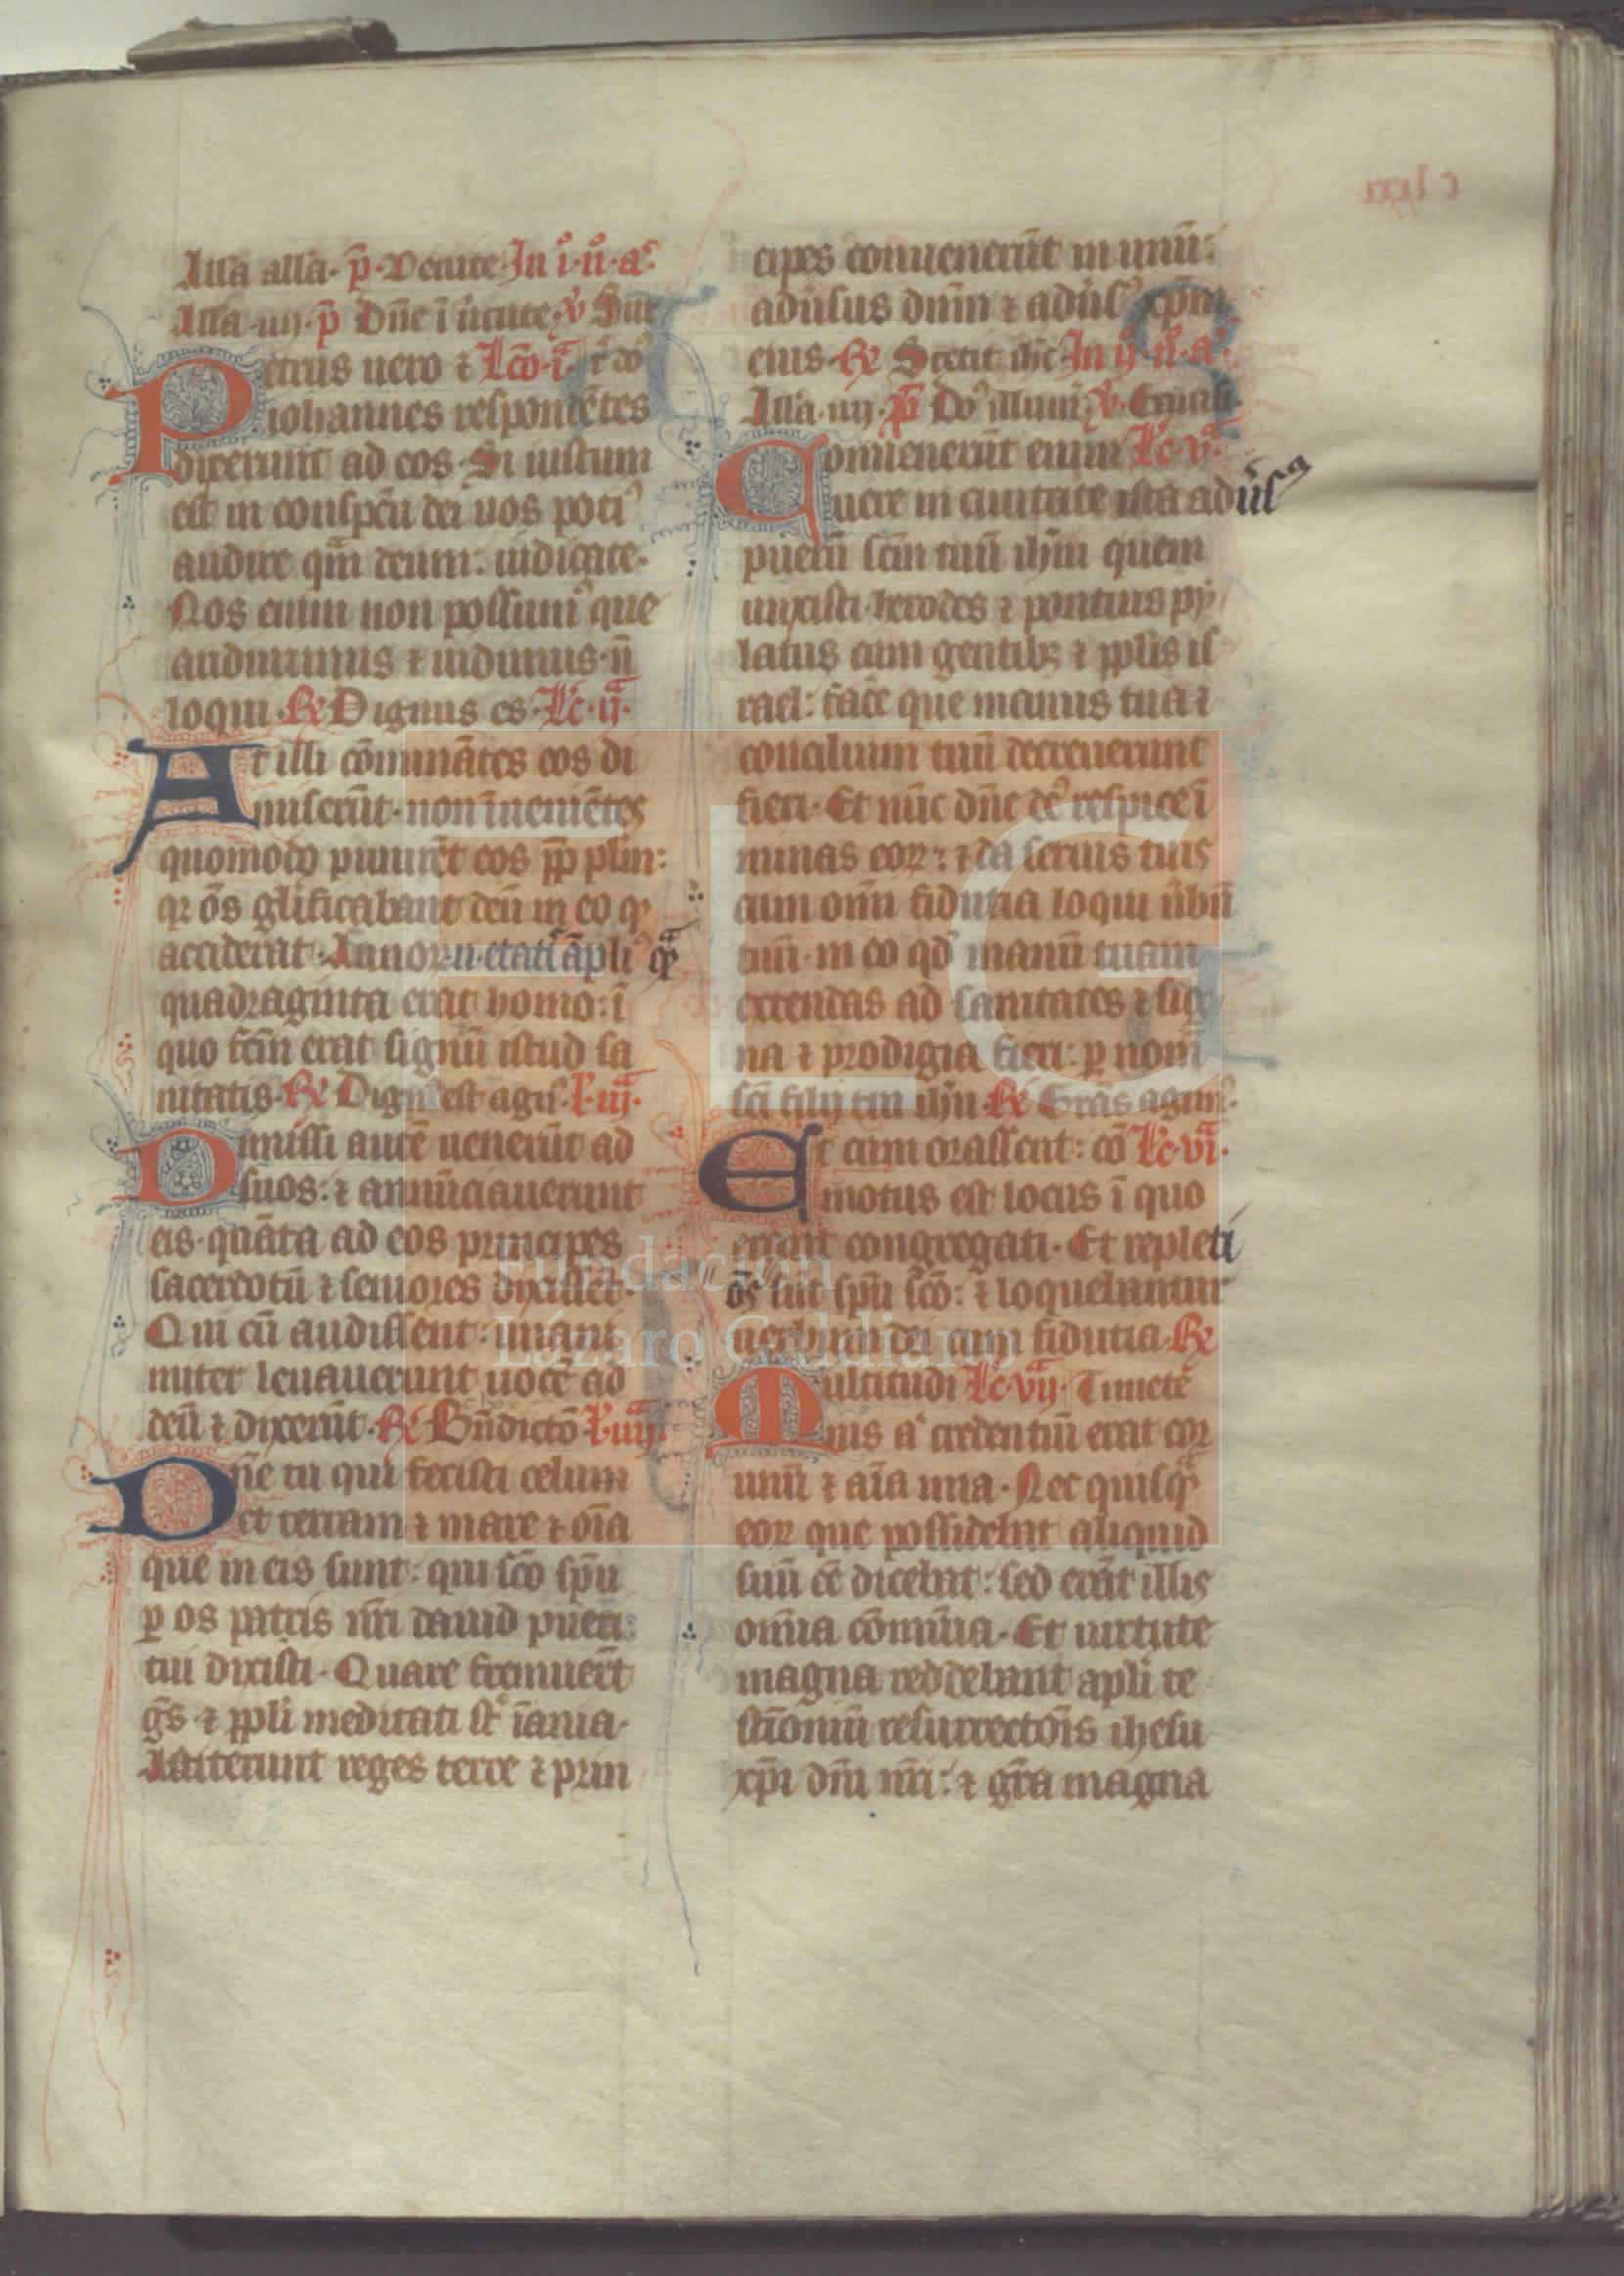 Alla alla. p̄. Venite. In .i. n̊. a͛.
Alla .iiij. p̄ Dn̄e ī u̇tute. ℣ Sur
Petrus uero ⁊ Lc̄o .i.ᵃ
iohannes respondētes
dixerunt ad eos. Si iustum
est in conspc̄u dei uos poti⁹
audire qᵃ̄m deum: iudicate.
Nos enim non possum⁹ que
audiuimus ⁊ uidimus. n̄
loqui. ℟ Dignus es. Lc̄. ij.ᵃ
At illi cōminātes eos di
miserūt. non īuenietēs
quomodo punirēt eos pp̄ plm̄:
qr ōs glificabant deū in eo qͦ
acciderat. Annoꝝ. n. etatꝭ āpli⁹ qᵃ̄
quadraginta erat homo: ī
quo fc̄m erat signū istud sa
nitatis. ℟ Dign⁹ est agn⁹. L̄. iij.ᵃ
Dimissi autē uenerūt ad
suos: ⁊ annūciauerunt
eis. quāta ad eos principes
sacerdotū ⁊ seniores dixissēt.
Qui cū audissent: unani
miter leuauerunt uocē ad
deū ⁊ dixerūt. ℟ Bn̄dictō L̄. iiij.ᵃ
Dn̄e tu qui fecisti celum
et terram ⁊ mare ⁊ oīa
que in eis sunt: qui sc̄o sp̄u
ꝑ os patris nr̄i dauid pueri
tui dixisti. Quare fremuerūt
gn̄s ⁊ ppl̄i meditati st̄ īania.
Astiterunt reges terre ⁊ prin
c lxxi
cipes conuenerūt in unū:
adūsus dnm̄ ⁊ adūs⁹ xp̄m
eius. ℟ Stetit ih̄c. In ij. n̊. a͛.
Alla .iiij. p̄ Do⁹ illum ℣.
Conuenerūt enim Lc̄. v.ᵃ
uere in ciuitate ista adūs⁹
puerū sc̄m tuū ih̄m quem
unxisti. herodes ⁊ pontius py
latus cum gentibꝫ ⁊ pplis is
rael: facē que manus tua ⁊
concilium tuū decreuerunt
fieri. Et nūc dn̄e de⁹ respice ī
minas eoꝝ: ⁊ da seruis tuis
cum omī fidutia loqui u̇bū
tuū. in eo qd̄ manū tuam
extendas ad sanitates ⁊ sig
na ⁊ prodigia fieri: ꝑ nom̄
sc̄i filij tui ih̄u. ℟ Gr̄as agim⁹.
Et cum orassent: cō Lc̄. vi.ᵃ
motus est locus ī quo
erant congregati. Et repleti
ōs sūt sp̄u sc̄o: ⁊ loquebantur
uerbum dei cum fidutia. ℟
Multitudi Lc̄. vij.ᵃ Timetē
nis a͛ credentiū erat cor
unū ⁊ aīa una. Nec quisqᵃ̄
eoꝝ que possidebnt aliquid
suū eē dicebnt: sed erāt illis
omīa cōmunia. Et uirtute
magna reddebant apl̄i te
stīoniū resurrectōis ihesu
xp̄i dn̄i nr̄i: ⁊ gr̄a magna
FLG
Fundación
Lázaro Galdiano